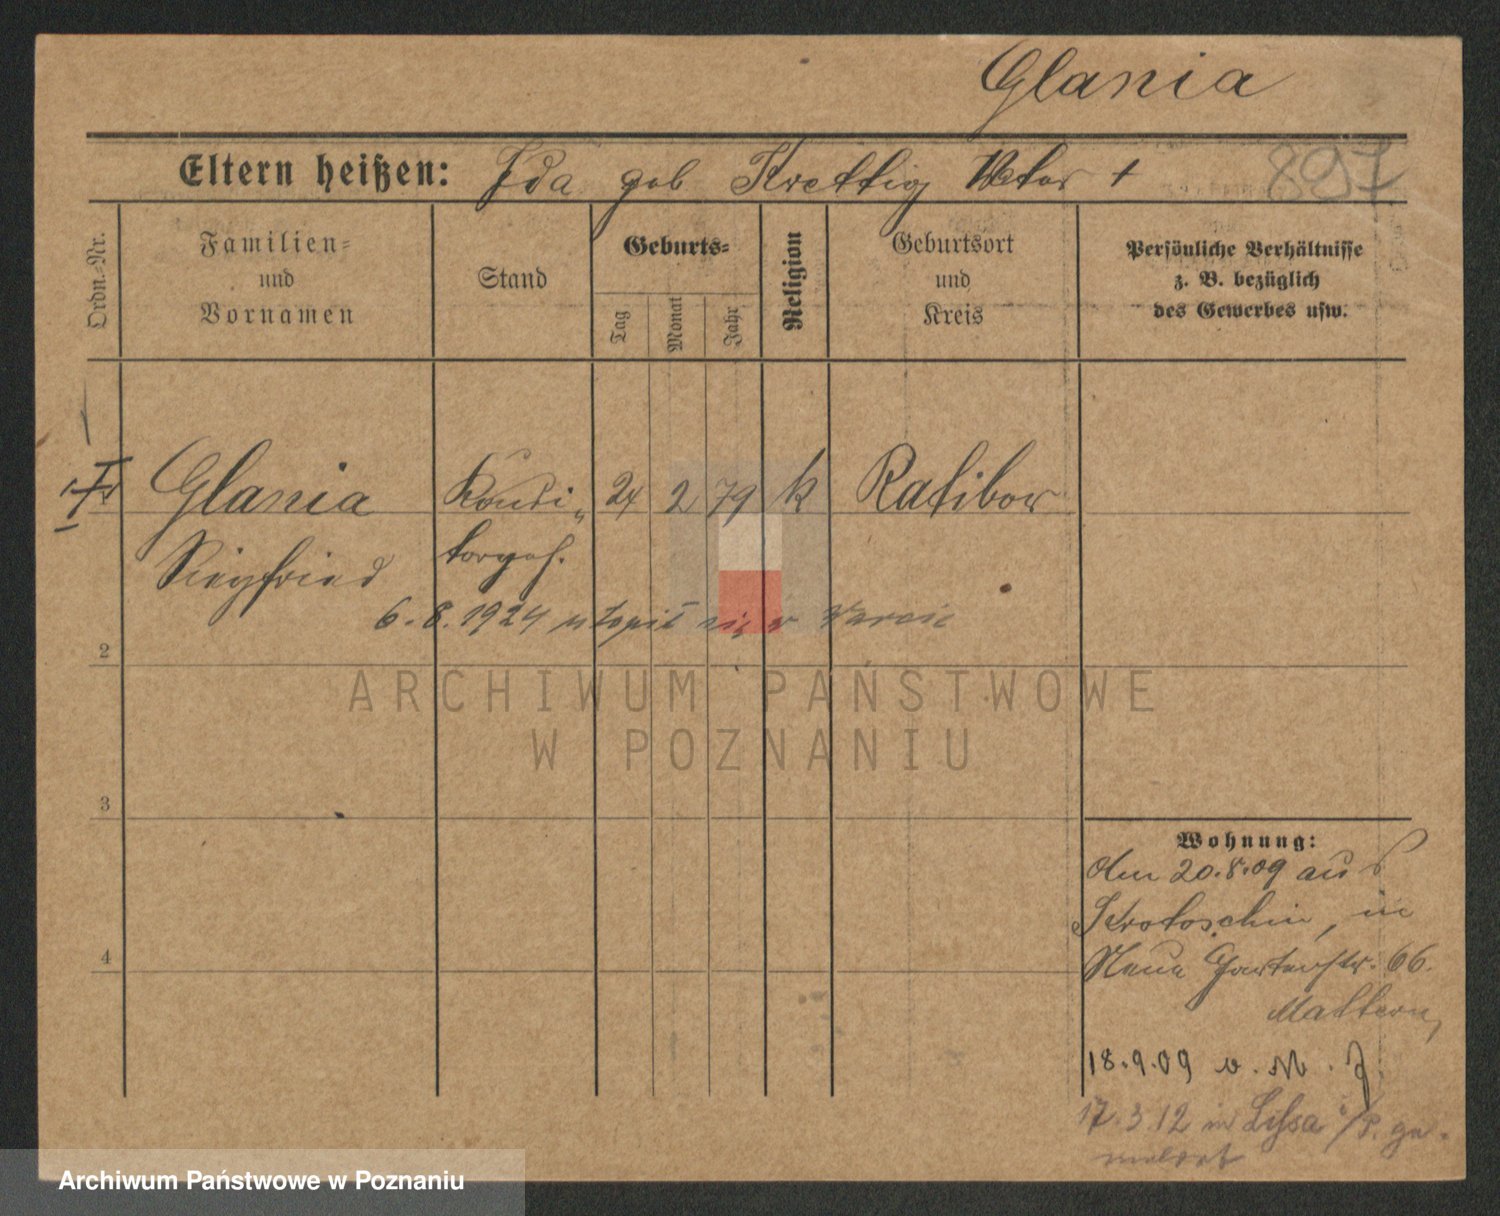 Glania
Eltern heißen: Ida geb Krettig Vktor +
897
Ordn.-Nr.
Familien=
und
Vornamen
Stand
Geburts=
Tag
Monat
Jahr
Religion
Geburtsort
und
Kreis
Persönliche Verhältnisse
z. B. bezüglich
des Gewerbes usw.
Glania Kondi„ 24 2 79 k Ratibor
Siegfried torgeh.
6.8.1924 utopił się w Warcie
2
3
4
Wohnung:
den 20.8.09 aus
Krotoschin, in
Neue Gartenstr. 66.
Mattern,
18.9.09 v. M. J.
17.3.12 in Lissa i/P. ge-
meldet
ARCHIWUM PAŃSTWOWE
W POZNANIU
Archiwum Państwowe w Poznaniu